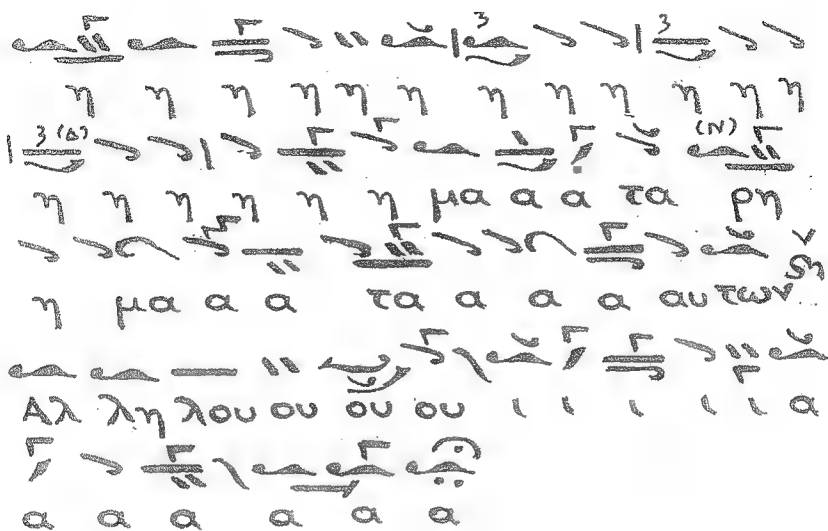 η η η η η η η η η η η η
η η η η η η μα α α τα ρη
η μα α α τα α α α αυ των
Αλ λη λου ου ου ου ι ι ι ι ι α
α α α α α α